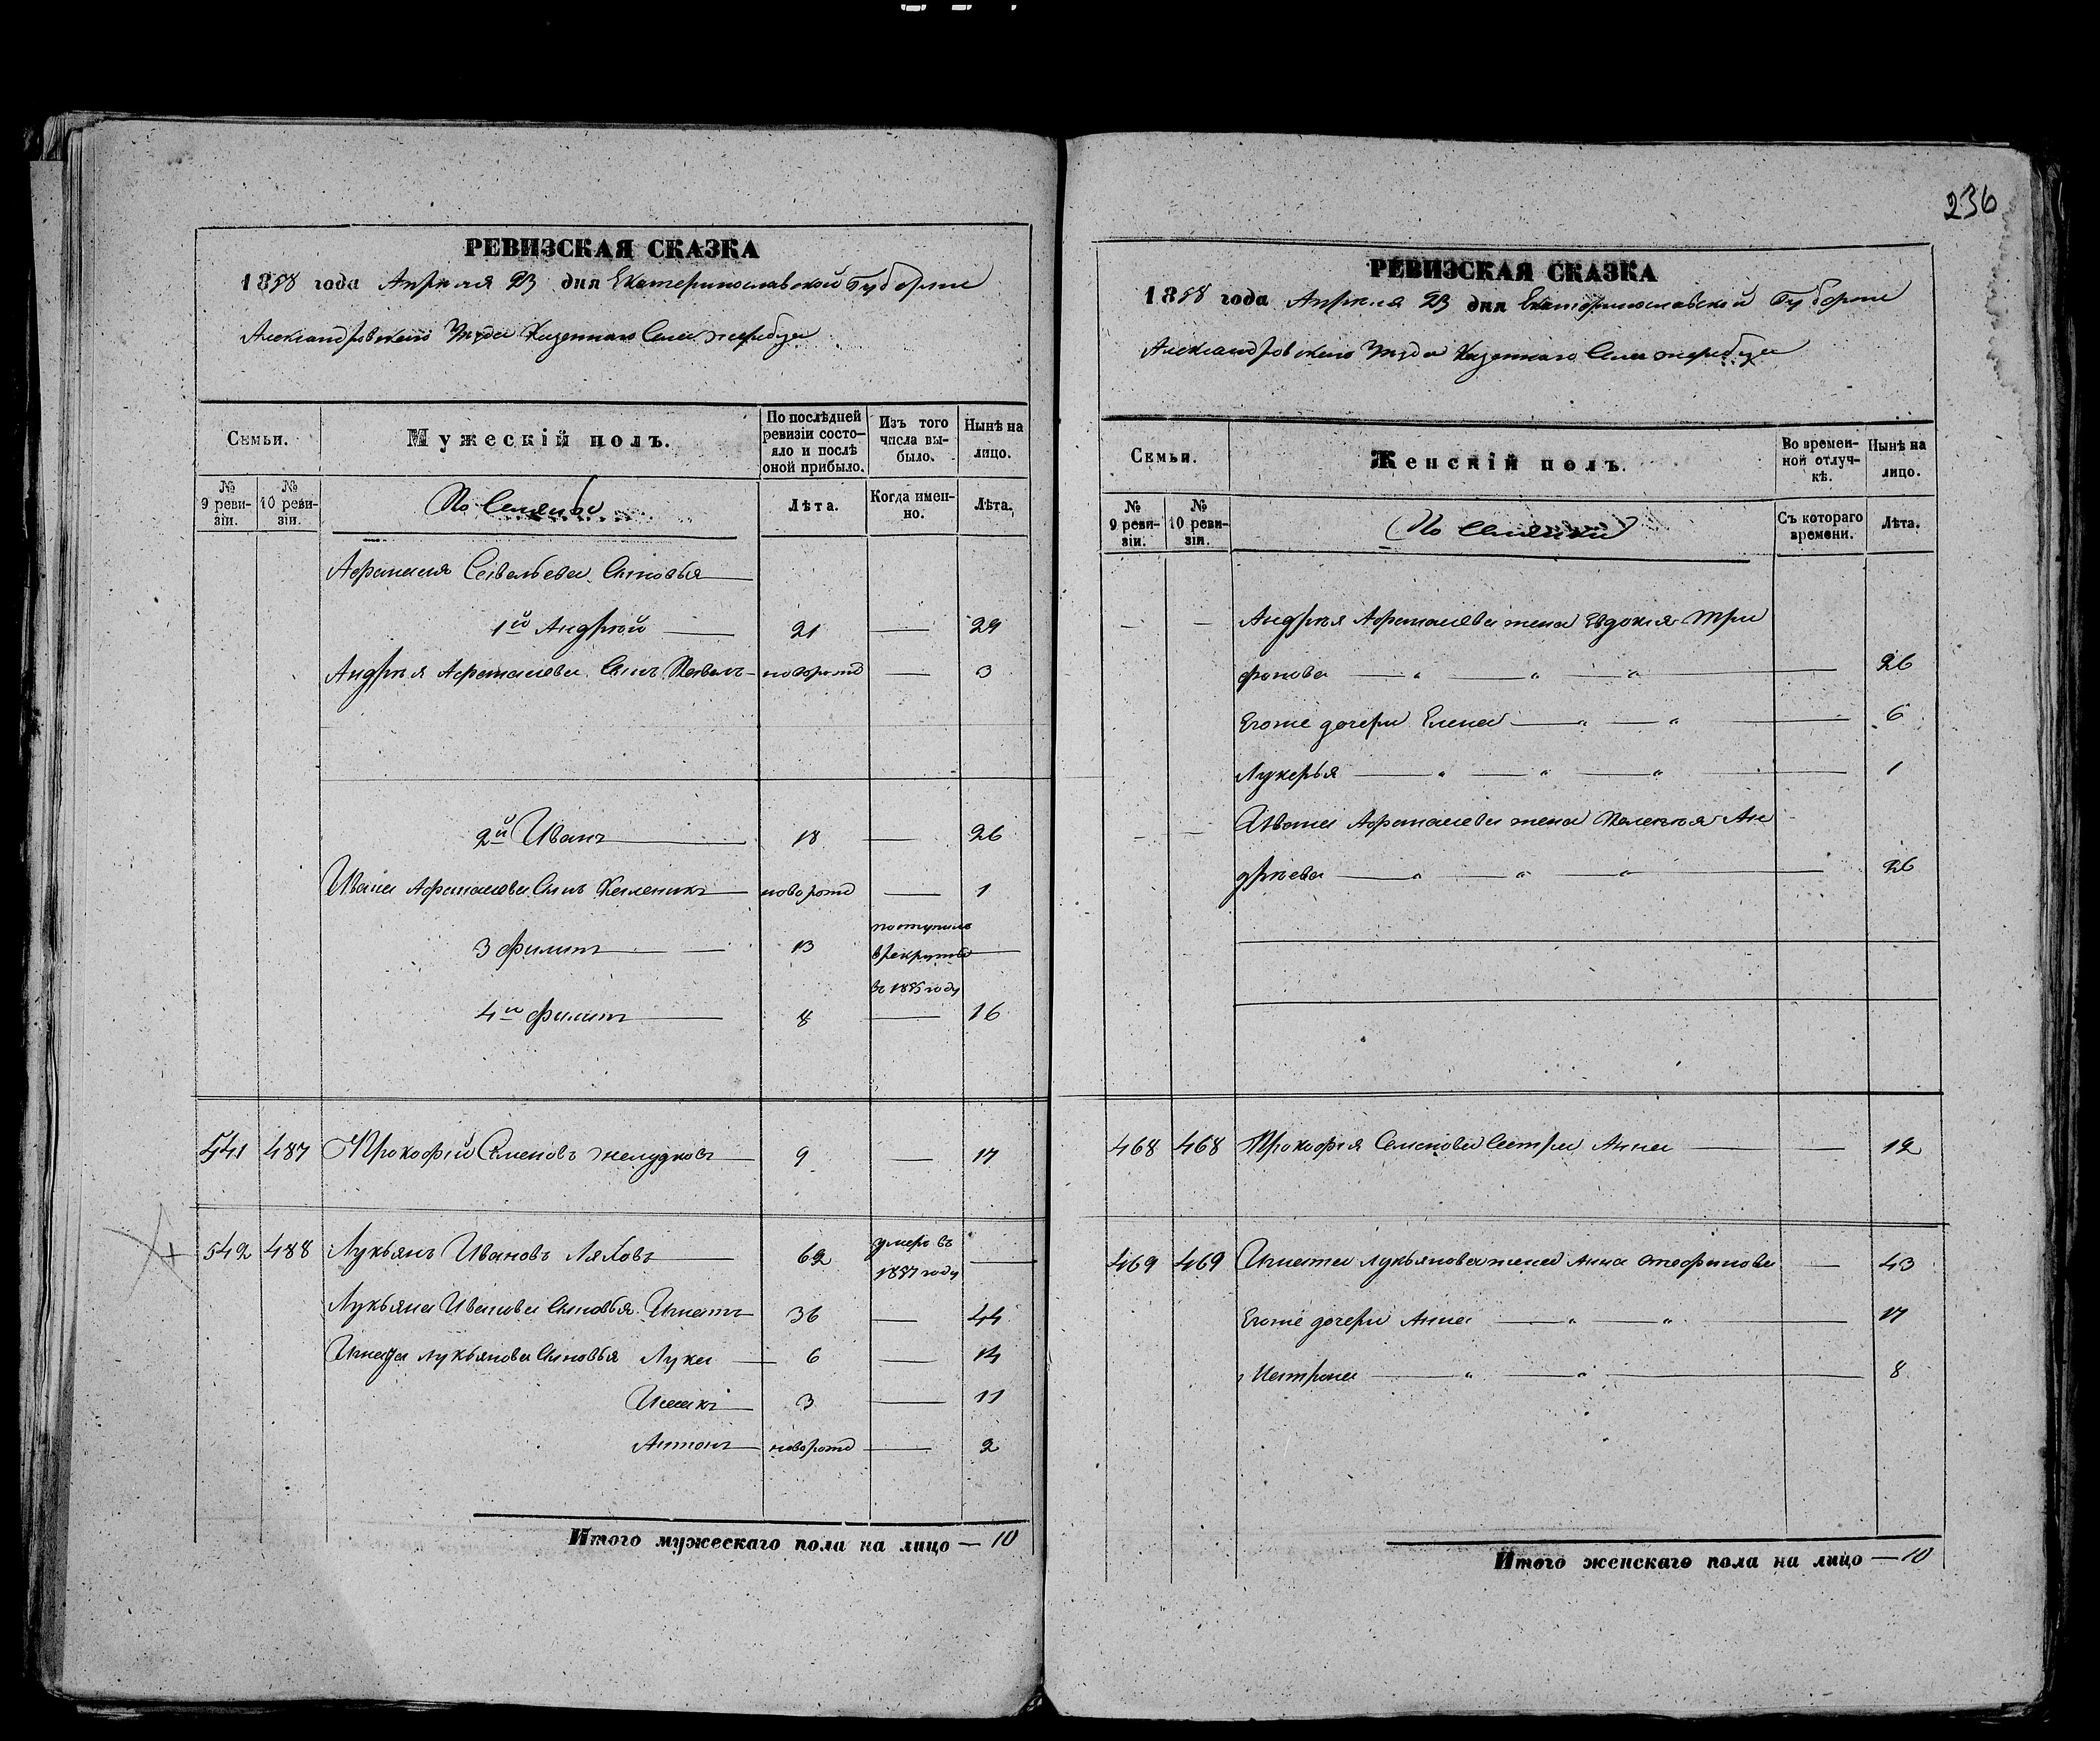 236
РЕВИЗСКАЯ СКАЗКА
1858 года Апреля 23 дня Екатеринославской Губернии
Александровскаго Уезда Казеннаго Села Жеребца
Семьи.
Мужескій полъ.
По послѣдней ревизіи состо-
яло и послѣ
оной прибыло.
Изъ того
числа вы-
было.
Нынѣ на
лицо.
№
9 реви-
зіи.
№
10 реви-
зіи.
Лѣта.
Когда имен-
но.
Лѣта.
Афанасия Савельева Сыновья
1й Андрѣй — 21 — 29
Андрѣя Афанасьева Сынъ Павелъ — новорожд — 3
2й Иванъ — 18 — 26
Ивана Афанасьева Сынъ — новорожд — 1
3 Филипъ — 13 поступилъ
в рекруты —
въ 1855 году
4й Филипъ — 8 — 16
541 487 Прокофій Семеновъ Желудковъ — 9 — 17
542 488 Лукьянъ Ивановъ Ляховъ — 62 умеръ въ
1857 году —
Лукьяна Иванова Сыновья Игнатъ — 36 — 44
Игната Лукьянова Сыновья Лука — 6 — 14
Исакъ — 3 — 11
Антонъ — новорожд — 2
Итого мужескаго пола на лицо — 10
РЕВИЗСКАЯ СКАЗКА
1858 года Апреля 23 дня Екатеринославской Губернии
Александровскаго Уезда Казеннаго Села Жеребца
Семьи.
Женскій полъ.
Во времен-
ной отлуч-
кѣ.
Нынѣ на
лицо.
№
9 реви-
зіи.
№
10 реви-
зіи.
Съ котораго
времени.
Лѣта.
— — Андрѣя Афанасьева жена Евдокия Три
фонова — „ — „ — „ — — 26
Егоже дочери Елена — „ — „ — 6
Лукерья — „ — „ — „ — 1
— — Ивана Афанасьева жена Пелагѣя Ан
дрѣева — „ — „ — „ — — 26
468 468 Прокофія Семенова Сестра Анна — — 12
469 469 Игната Лукьянова жена Анна — 43
Егоже дочери Анна — „ — „ — 17
— „ — „ — 8
Итого женскаго пола на лицо — 10